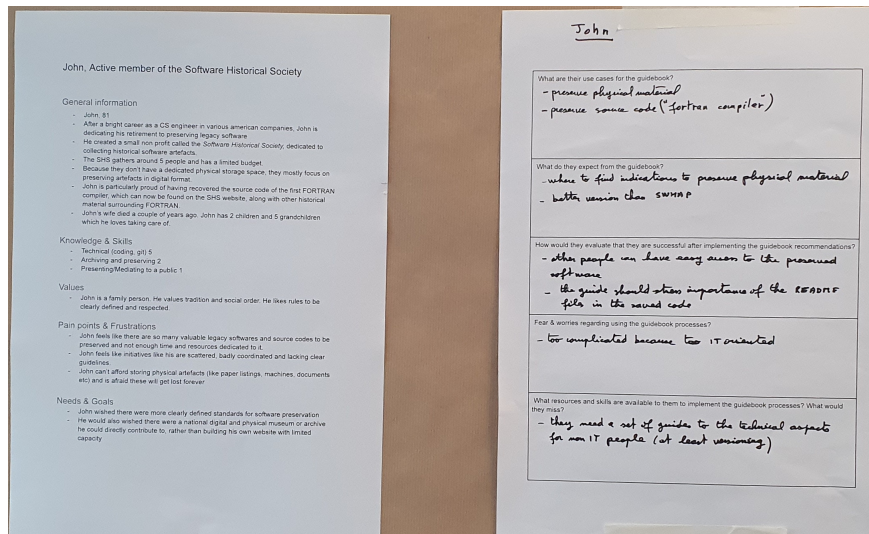 John, Active member of the Software Historical Society
General information
- John, 81
- After a bright career as a CS engineer in various american companies, John is
dedicating his retirement to preserving legacy software
- He created a small non profit called the Software Historical Society, dedicated to
collecting historical software artefacts.
- The SHS gathers around 5 people and has a limited budget.
- Because they don't have a dedicated physical storage space, they mostly focus on
preserving artefacts in digital format.
- John is particularly proud of having recovered the source code of the first FORTRAN
compiler, which can now be found on the SHS website, along with other historical
material surrounding FORTRAN.
- John's wife died a couple of years ago. John has 2 children and 5 grandchildren
which he loves taking care of.
Knowledge & Skills
- Technical (coding, git) 5
- Archiving and preserving 2
- Presenting/Mediating to a public 1
Values
- John is a family person. He values tradition and social order. He likes rules to be
clearly defined and respected.
Pain points & Frustrations
- John feels like there are so many valuable legacy softwares and source codes to be
preserved and not enough time and resources dedicated to it.
- John feels like initiatives like his are scattered, badly coordinated and lacking clear
guidelines.
- John can't afford storing physical artefacts (like paper listings, machines, documents
etc) and is afraid these will get lost forever
Needs & Goals
- John wished there were more clearly defined standards for software preservation
- He would also wished there were a national digital and physical museum or archive
he could directly contribute to, rather than building his own website with limited
capacity
John
What are their use cases for the guidebook?
- preserve physical material
- preserve source code ("fortran compiler")
What do they expect from the guidebook?
- where to find indications to preserve physical material
- better version than SWHAP
How would they evaluate that they are successful after implementing the guidebook recommendations?
- other people can have easy access to the preserved
software
- the guide should stress importance of the README
file in the saved code
Fear & worries regarding using the guidebook processes?
- too complicated because too IT oriented
What resources and skills are available to them to implement the guidebook processes? What would
they miss?
- they need a set of guides to the technical aspects
for non IT people (at least versioning)